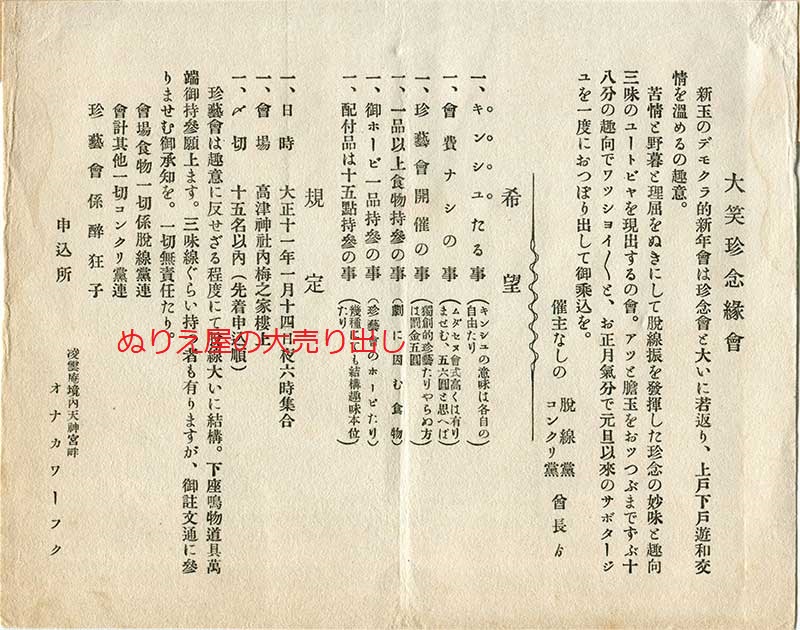 大笑珍念緣會
新玉のデモクラ的新年會は珍念會と大いに若返り、上戸下戸遊和交
情を溫めるの趣意。
苦情と野暮と理屈をぬきにして脫線振を發揮した珍念の妙味と趣向
三昧のユートピヤを現出するの會。アッと膽玉をおッつぶまですぶ十
八分の趣向でワッショイ〳〵と、お正月氣分で元旦以來のサボタージ
ユを一度におつぽり出して御乘込を。
催主なしの
脫線黨
コンクリ黨
曾長ゟ
希望
一、キンシユたる事
(キンシユの意味は各自の
自由たり)
一、會費ナシの事
(ムダセヌ會式高くは有り
ませむ、五六圓と思へば)
一、珍藝會開催の事
(獨創的珍藝たりやらぬ方
は罰金五圓)
一、一品以上食物持參の事
(劇に因む食物)
一、御ホービ一品持參の事
(珍藝會のホービたり)
一、配付品は十五點持參の事
(幾種にても結構趣味本位
たり)
規定
一、日時 大正十一年一月十四日夜六時集合
一、會場 高津神社內梅之家樓上
一、〆切 十五名以內(先着申込順)
珍藝會は趣意に反せざる程度にて脫線大いに結構。下座鳴物道具萬
端御持參願上ます。三味線ぐらい持參者も有りますが、御註文通に參
りませむ御承知を。一切無責任たり。
會場食物一切係脫線黨連
會計其他一切コンクリ黨連
珍藝會係醉狂子
申込所
凌雲庵境內天神宮畔
オナカワーフク
ぬりえ屋の大売り出し